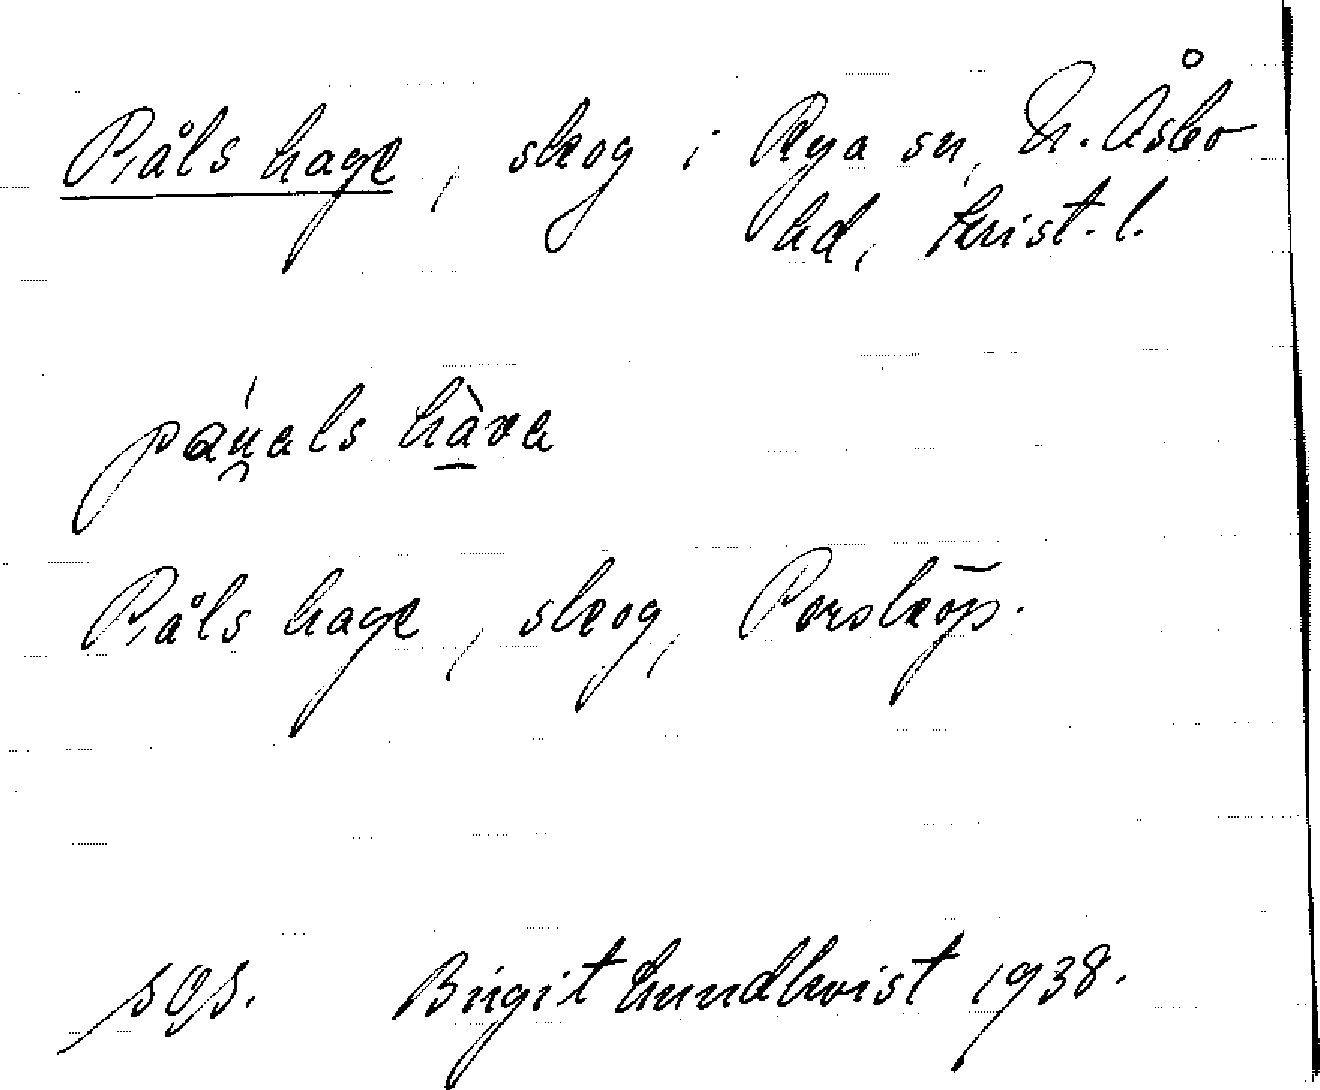 Påls hage, skog i Rya sn, N. Åsbo
hd, Krist. l.
Påls hage, skog, Porsköp.
Birgit Lundkvist 1938.